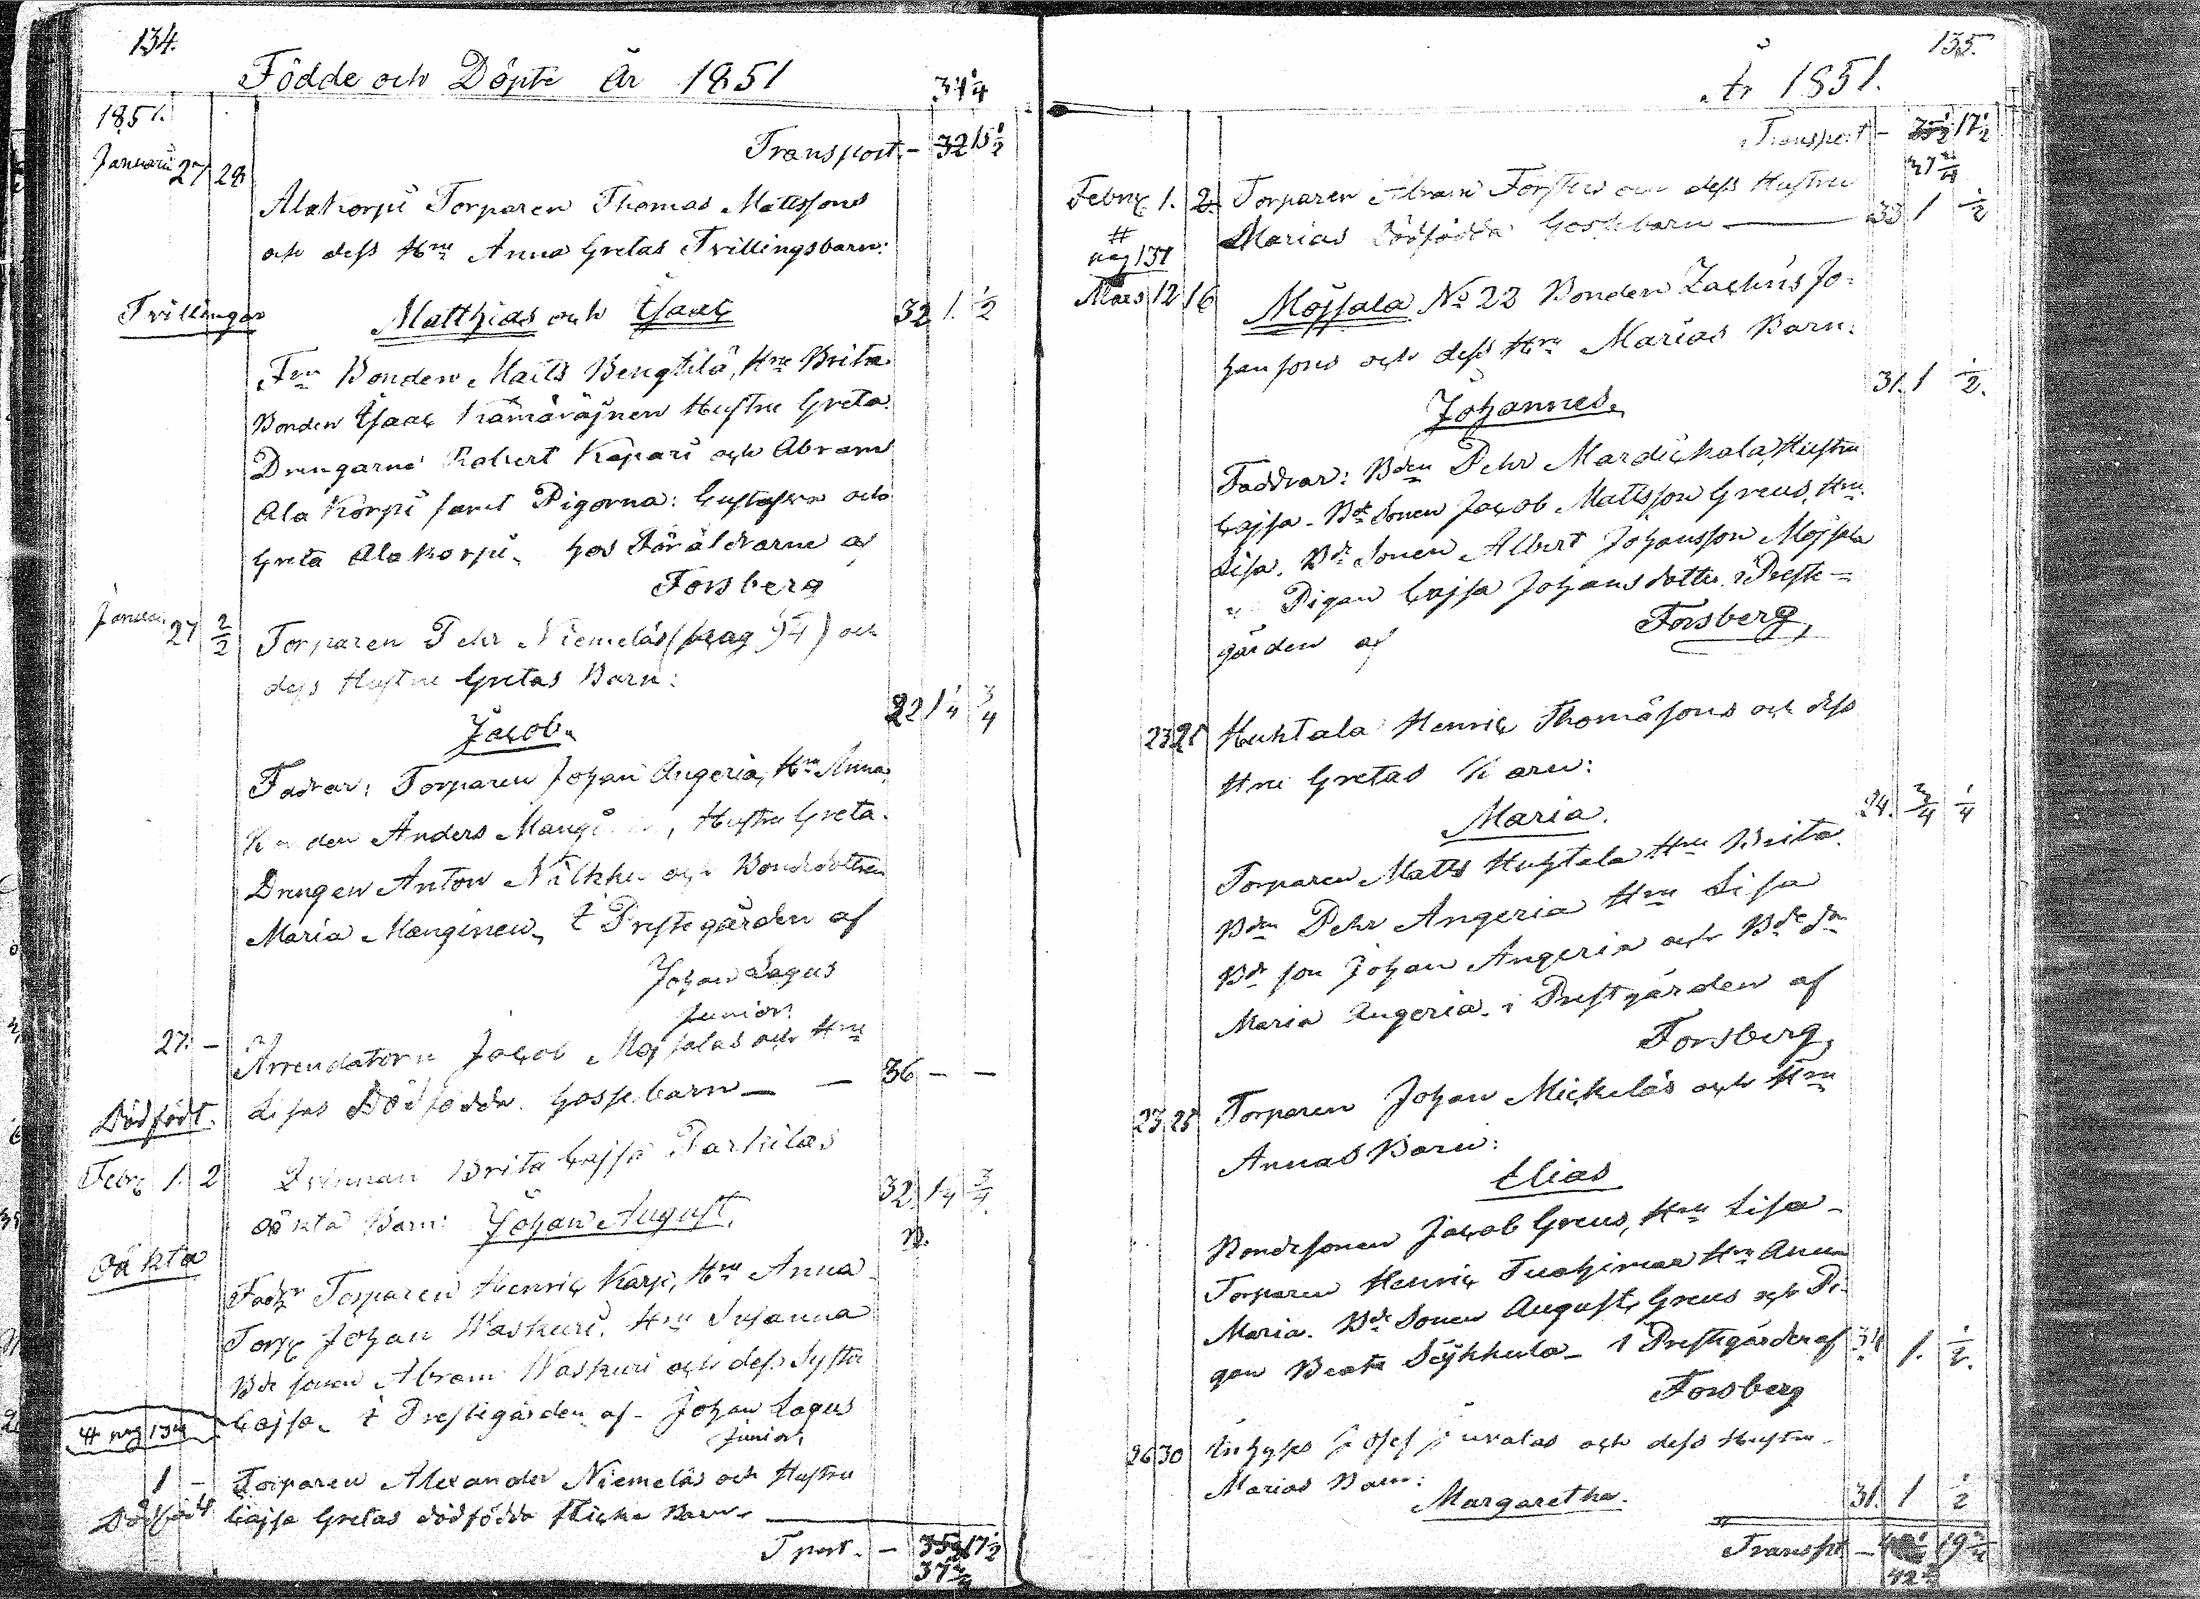 134.
Födde och Döpte År 1851
34 1/4
1851.
Transport. - 32 15 1/2
Januari 27 28
Alakorpi Torparen Thomas Mattssons
och dess Hru Anna Gretas Tvillingsbarn:
Tvillingar Matthias och Isaac 32 1. 1/2
Fru Bonden Matts Bengtilä, Hru Brita
Bonden Isaac Kämäräjnen Hustru Greta.
Drengarne Robert Kapari och Abram
Ala Korpi samt Pigorna: Gustafva och
Greta Alakorpi. hos Föräldrarne af
Forsberg
Januari 27 2/2 Torparen Pehr Niemeläs (pag 54) och
dess Hustru Gretas Barn:
Jacob. 22 1 1/4 3/4
Fadrar: Torparen Johan Angeria, Hru Anna,
Bonden Anders Mangi, Hustru Greta.
Drengen Anton Nälkkä och Bondedottren
Maria Manginen. I Prestegården af
Johan Lagus
Junior.
27. - Arrendatorn Jacob Mojsalas och Hru
Lisas Dödfödda Gossebarn - - 36 - -
Dödfödt.
Febr 1. 2 Qvinnan Brita Cajsa Parkilas
oäkta Barn: Johan August. 32. 1 1/4 3/4.
Oäkta
Fadr Torparen Henric Karp, Hru Anna
Torp Johan Waskuri. Hru Susanna
Bde sonen Abram Waskuri och dess Syster
Cajsa. I Prestegården af - Johan Lagus
Junior.
# pag 134
1 - Torparen Alexander Niemeläs och Hustru
Dödfödt Cajsa Gretas dödfödda flicke Barn.
Tport. - 35 3/4 17 1/2
37 3/4
135.
År 1851.
Transport - 35 1/2 17 1/2
37 3/4
Febr 1. 2. Torparen Abram Forsten och dess Hustru
Marias Dödfödda Gossebarn 33 1 1/2
#
pag 134
Mars 12 16 Mojsala No 22 Bonden Zachris Jo-
hanssons och dess Hru Marias Barn:
Johannes. 31. 1 1/2.
Faddrar: Bden Pehr Mardickala, Hustru
Cajsa. Bde Sonen Jacob Mattsson Greus, Hru
Lisa. Bde Sonen Albert Johansson Mojsala
Pigan Cajsa Johansdotter i Preste-
gården af Forsberg,
23 25 Huhtala Henric Thomassons och dess
Hru Gretas Barn:
Maria. 24. 3/4 1/4
Torparen Matts Huhtala Hru Brita.
Bden Pehr Angeria Hru Lisa
Bde son Johan Angeria och Bde dn
Maria Angeria. i Prestgården af
Forsberg,
23 25 Torparen Johan Mickeläs och Hru
Annas Barn:
Elias
Bondesonen Jacob Greus, Hru Lisa -
Torparen Henric Tuohimaa Hru Anna
Maria. Bde Sonen August Greus och Pi-
gan Beata Säjkkula - i Prestegården af 34 1. 1/2.
Forsberg
26 30 Inhyses Josef Juvalas och dess Hustru -
Marias Barn:
Margaretha. 31. 1 1/2
Transpt - 19 3/4
42 3/4